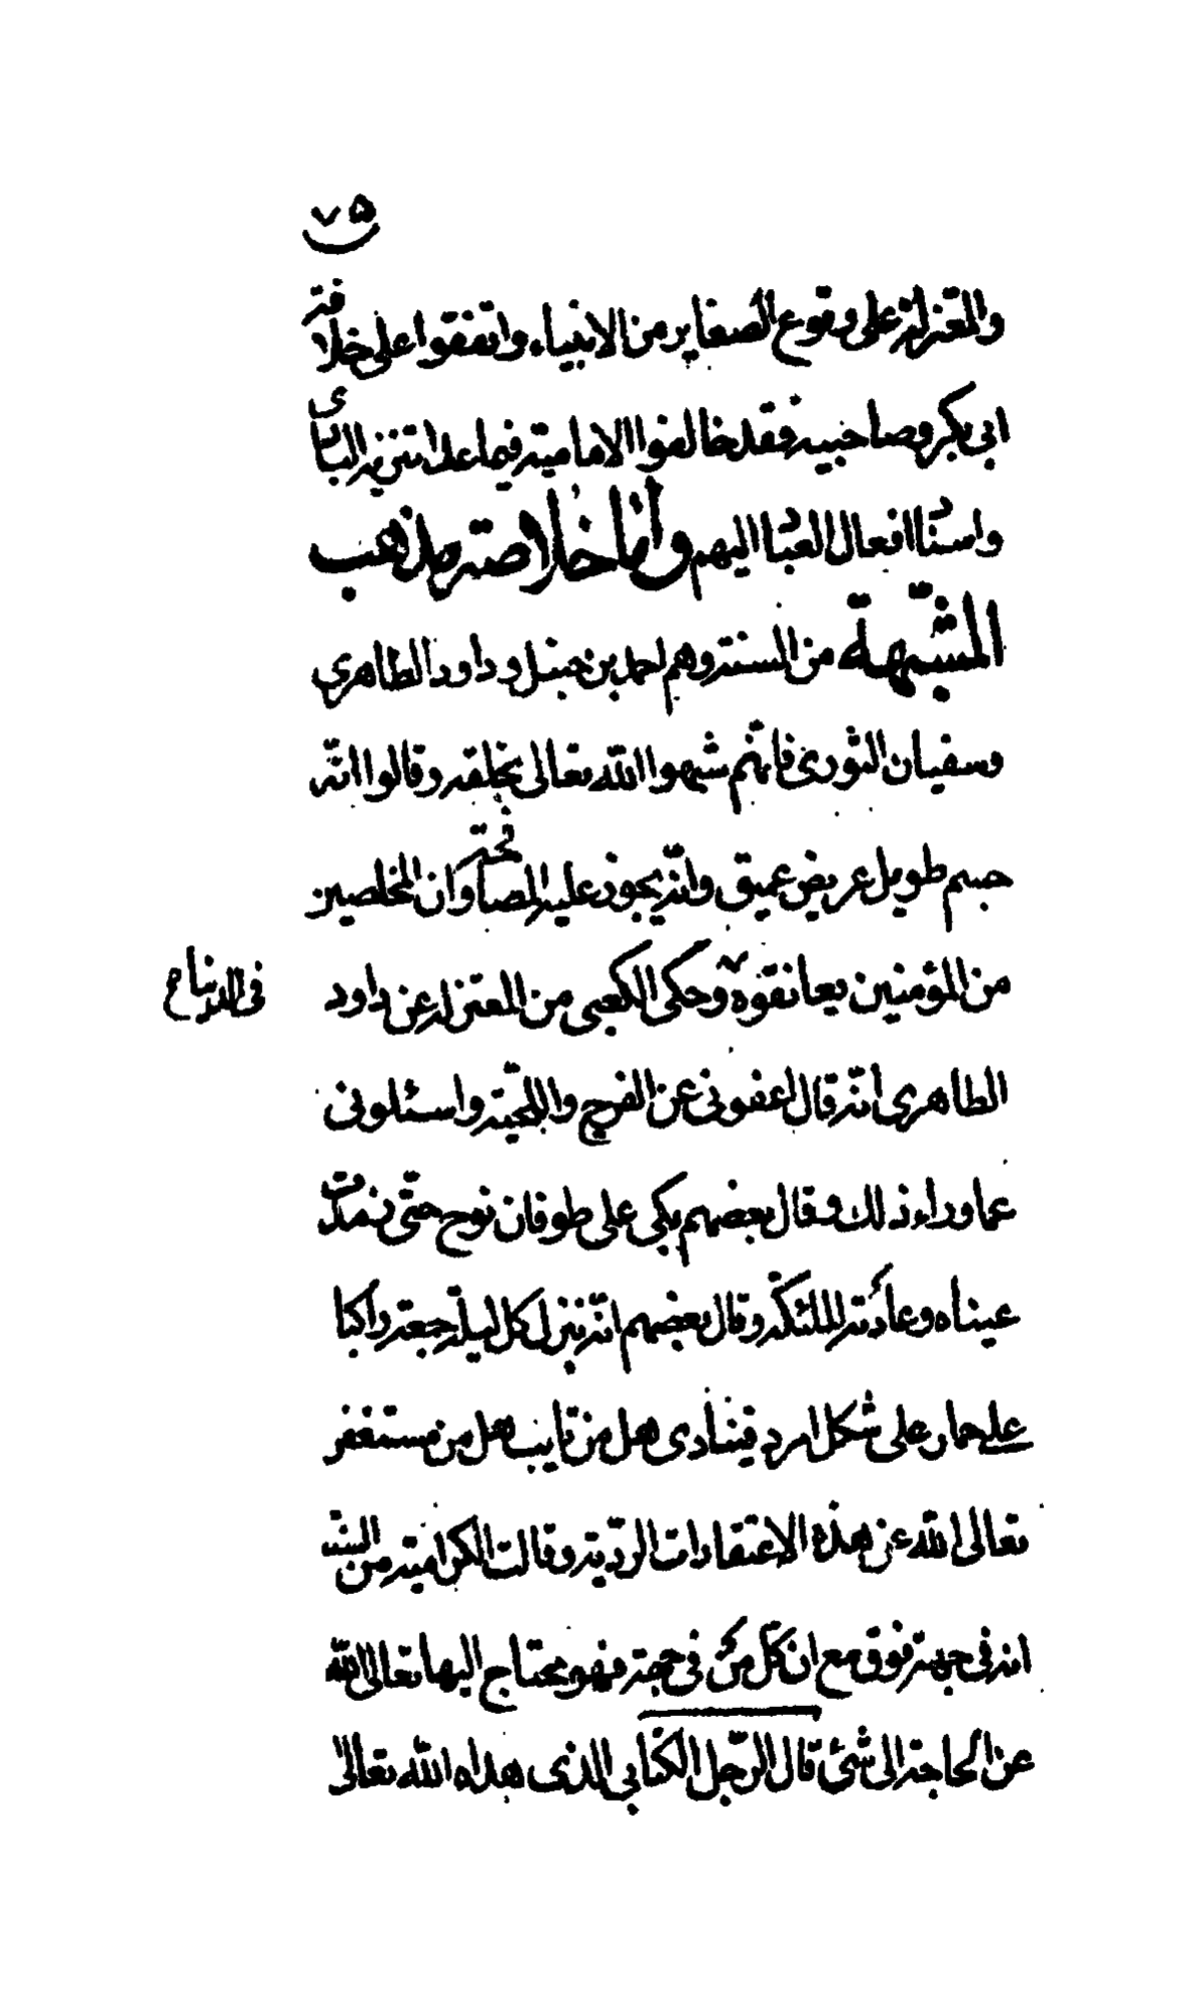 ٧٥
والمعتزلة على وقوع الصغاير من الانبياء واتفقوا على خلافة
ابى بكر وصاحبيه فقد خالفوا الامامية فيما عدا تنزيه البارى
واسناد افعال العباد اليهم واما خلاصة مذهب
المشبّهة من السنة وهم احمد بن حنبل وداود الظاهرى
وسفيان الثورى فانّهم شبهوا الله تعالى بخلقه وقالوا انّه
جسم طويل عريض عميق وانّه يجوز عليه المصافحة وان المخلصين
من المؤمنين يعانقوه وحكى الكعبى من المعتزلة عن داود
فى الدنيا صح
الظاهرى انّه قال اعفونى عن الفرج واللحية واسئلونى
عما وراء ذلك وقال بعضهم بكى على طوفان نوح حتّى رمدت
عيناه وعادته الملئكة وقال بعضهم انّه ينزل كل ليلة جمعة راكبا
على حمار على شكل امرد فينادى هل من تايب هل من مستغفر
تعالى الله عن هذه الاعتقادات الرديّة وقالت الكرامية من السنة
انه فى جهة فوق مع ان كلّ من فى جهة فهو محتاج اليها تعالى الله
عن الحاجة الى شئ قال الرّجل الكتابى الذى هداه الله تعالى